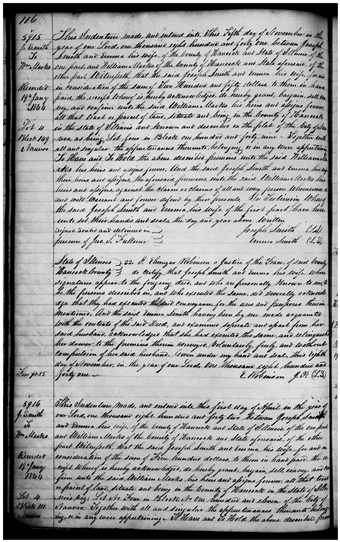 116
5915
J. Smith
To
Wm Marks
This Indenture made, and entered into This Fifth day of November in the
year of our Lord, one thousand eight hundred and forty one between Joseph
Smith and Emma his wife of the County of Hancock and State of Illinois, of the
one part, and William Marks of the County of Hancock and State aforesaid, of the
other part. Witnesseth, that the said Joseph Smith and Emma his wife, for and
in consideration of the sum of Five Hundred and fifty dollars to them in hand
paid, the receipt whereof is hereby acknowledged, do hereby grant, bargain, sell con-
vey and confirm unto the said William Marks his heirs and assigns forever
all that tract or parcel of land, situate and being in the County of Hancock
in the State of Illinois and known and described in the plat of the City of Nau-
voo as being Lot four in Block one hundred and forty nine. Together with
all and singular the appurtenances thereunto belonging, or in any wise appertaining
To Have and To Hold the above described premises unto the said William M-
arks his heirs and assigns forever. And the said Joseph Smith and Emma his wife
their heirs and assigns, the aforesaid premises unto the said William Marks his
heirs and assigns against the claim or claims of all and every person whomsoever
and will Warrant and forever defend by these presents. In Testimony Whereof
the said Joseph Smith and Emma his wife of the first part have here-
unto set their hands and seals the day and year above written
Signed, sealed and delivered in
presence of Jas. S. Fullmer
Joseph Smith (L.S.)
Emma Smith (L.S.)
Recorded
18th Jany
1844
Lot 4
Block 149
Nauvoo
State of Illinois
Hancock County
SS. I, Ebenezer Robinson a Justice of the Peace of said County
do certify, that Joseph Smith and Emma his wife whose
signature appears to the forgoing deed and who are personally known to me to
be the persons described in and who executed the same, did severally acknowl-
edge that they had executed the said conveyance for the uses and purposes therein
mentioned. And the said Emma Smith having been by me made acquainted
with the contents of the said Deed, and examined separate and apart from her
said husband, acknowledged that she had executed the same, and relinquished
her dower to the premises therein conveyed, Voluntarily, freely and without
compulsion of her said husband. Given under my hand and seal, this eighth
day of November, in the year of our Lord, One thousand eight hundred and
forty one
E. Robinson J.P. (L.S.)
5916
J. Smith
To
Wm Marks
This Indenture Made, and entered into this first day of April in the year of
our Lord, one thousand eight hundred and forty two, Between Joseph Smith
and Emma his wife, of the County of Hancock and State of Illinois of the one part,
and William Marks, of the County of Hancock and State aforesaid, of the other
part. Witnesseth, that the said Joseph Smith and Emma, his wife, for and in
consideration of the sum of Five Hundred dollars to them in hand paid, the re-
ceipt whereof is hereby acknowledged, do, hereby grant, bargain, sell convey, and con-
firm unto the said William Marks, his heirs and assigns forever, all that tract
or parcel of Land, situate and being in the County of Hancock in the State of Illi-
nois, being Lot No Four in Block No One hundred and eleven of the City of
Nauvoo. Together with all and singular the appurtenances thereunto belong-
ing, or in any wise appertaining. To Have and To Hold the above described prem-
Recorded
18th Jany
1844
Lot 4
Block 111